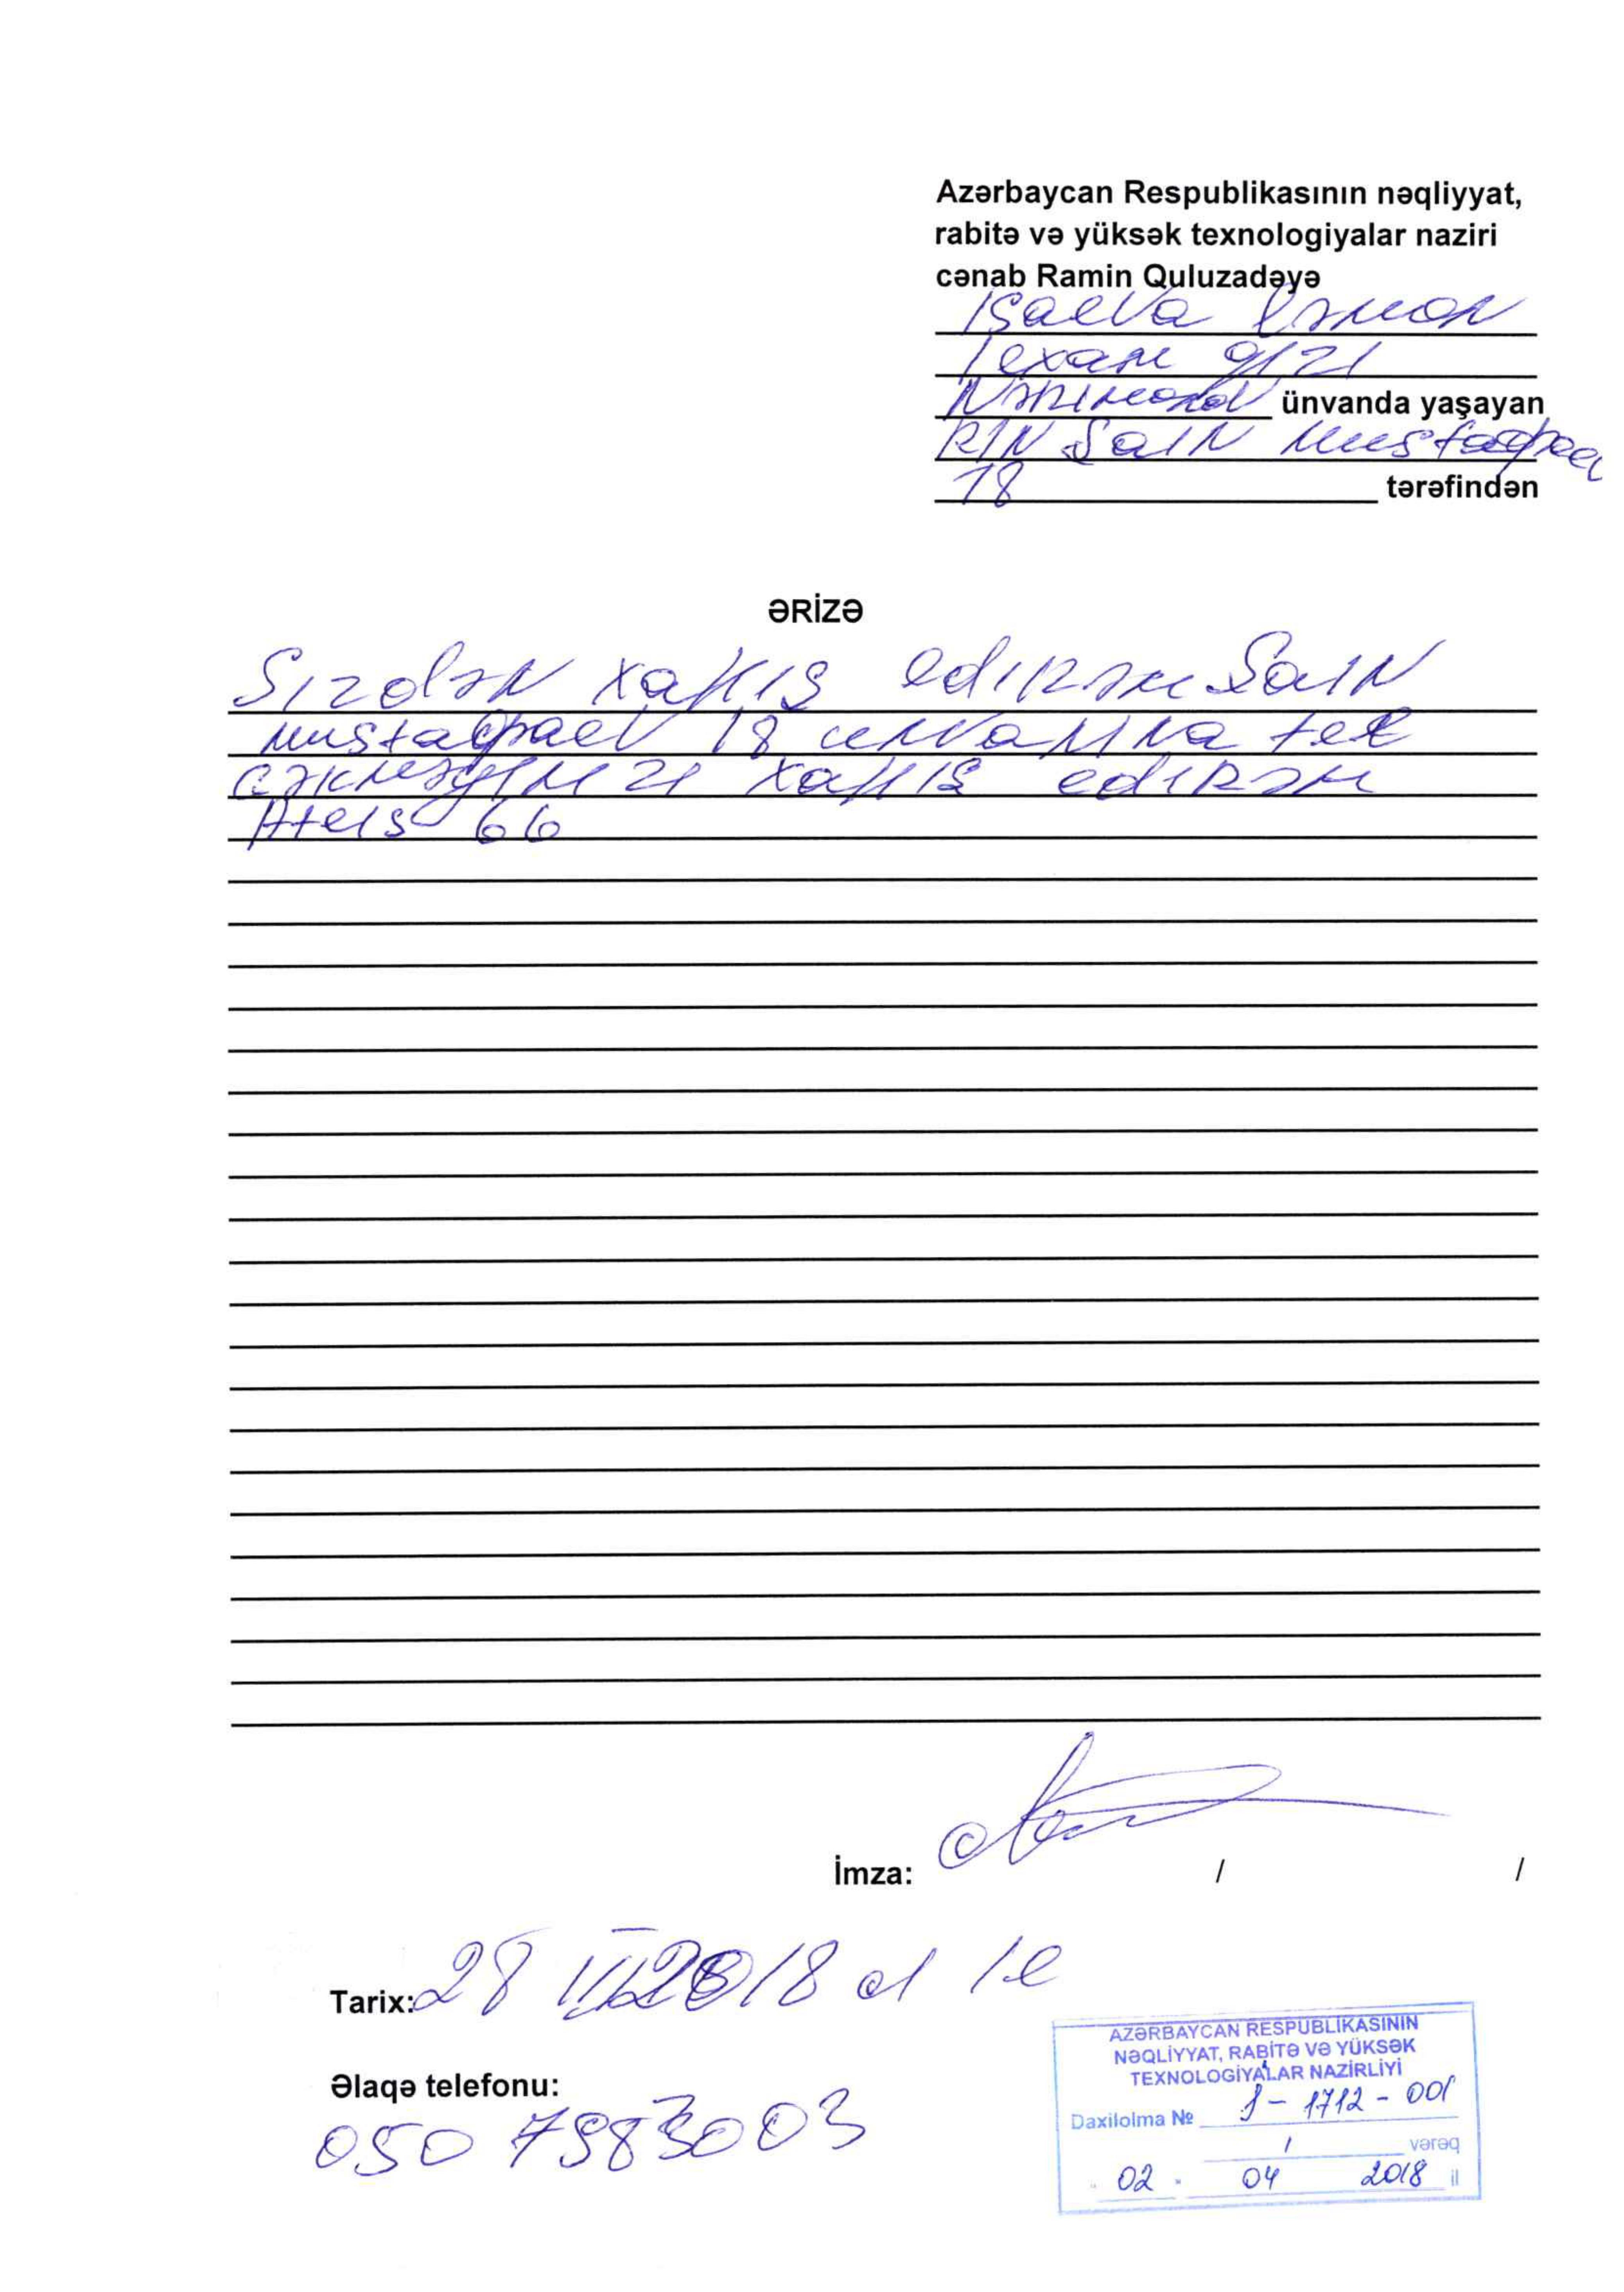 Azərbaycan Respublikasının nəqliyyat,
rabitə və yüksək texnologiyalar naziri
cənab Ramin Quluzadəyə
İsaeva
qızı
ünvanda yaşayan
18
tərəfindən
ƏRİZƏ
Sizdən xahiş edirəm Sain
mustafaev 18 unvanına tel
çəkməyinizi xahiş edirəm
Ateis 66
İmza: / /
Tarix: 28 2018 ci il
Əlaqə telefonu:
AZƏRBAYCAN RESPUBLİKASININ
NƏQLİYYAT, RABİTƏ VƏ YÜKSƏK
TEXNOLOGİYALAR NAZİRLİYİ
Daxilolma № 1-1712-001
1 vərəq
" 02 " 04 2018 il
050